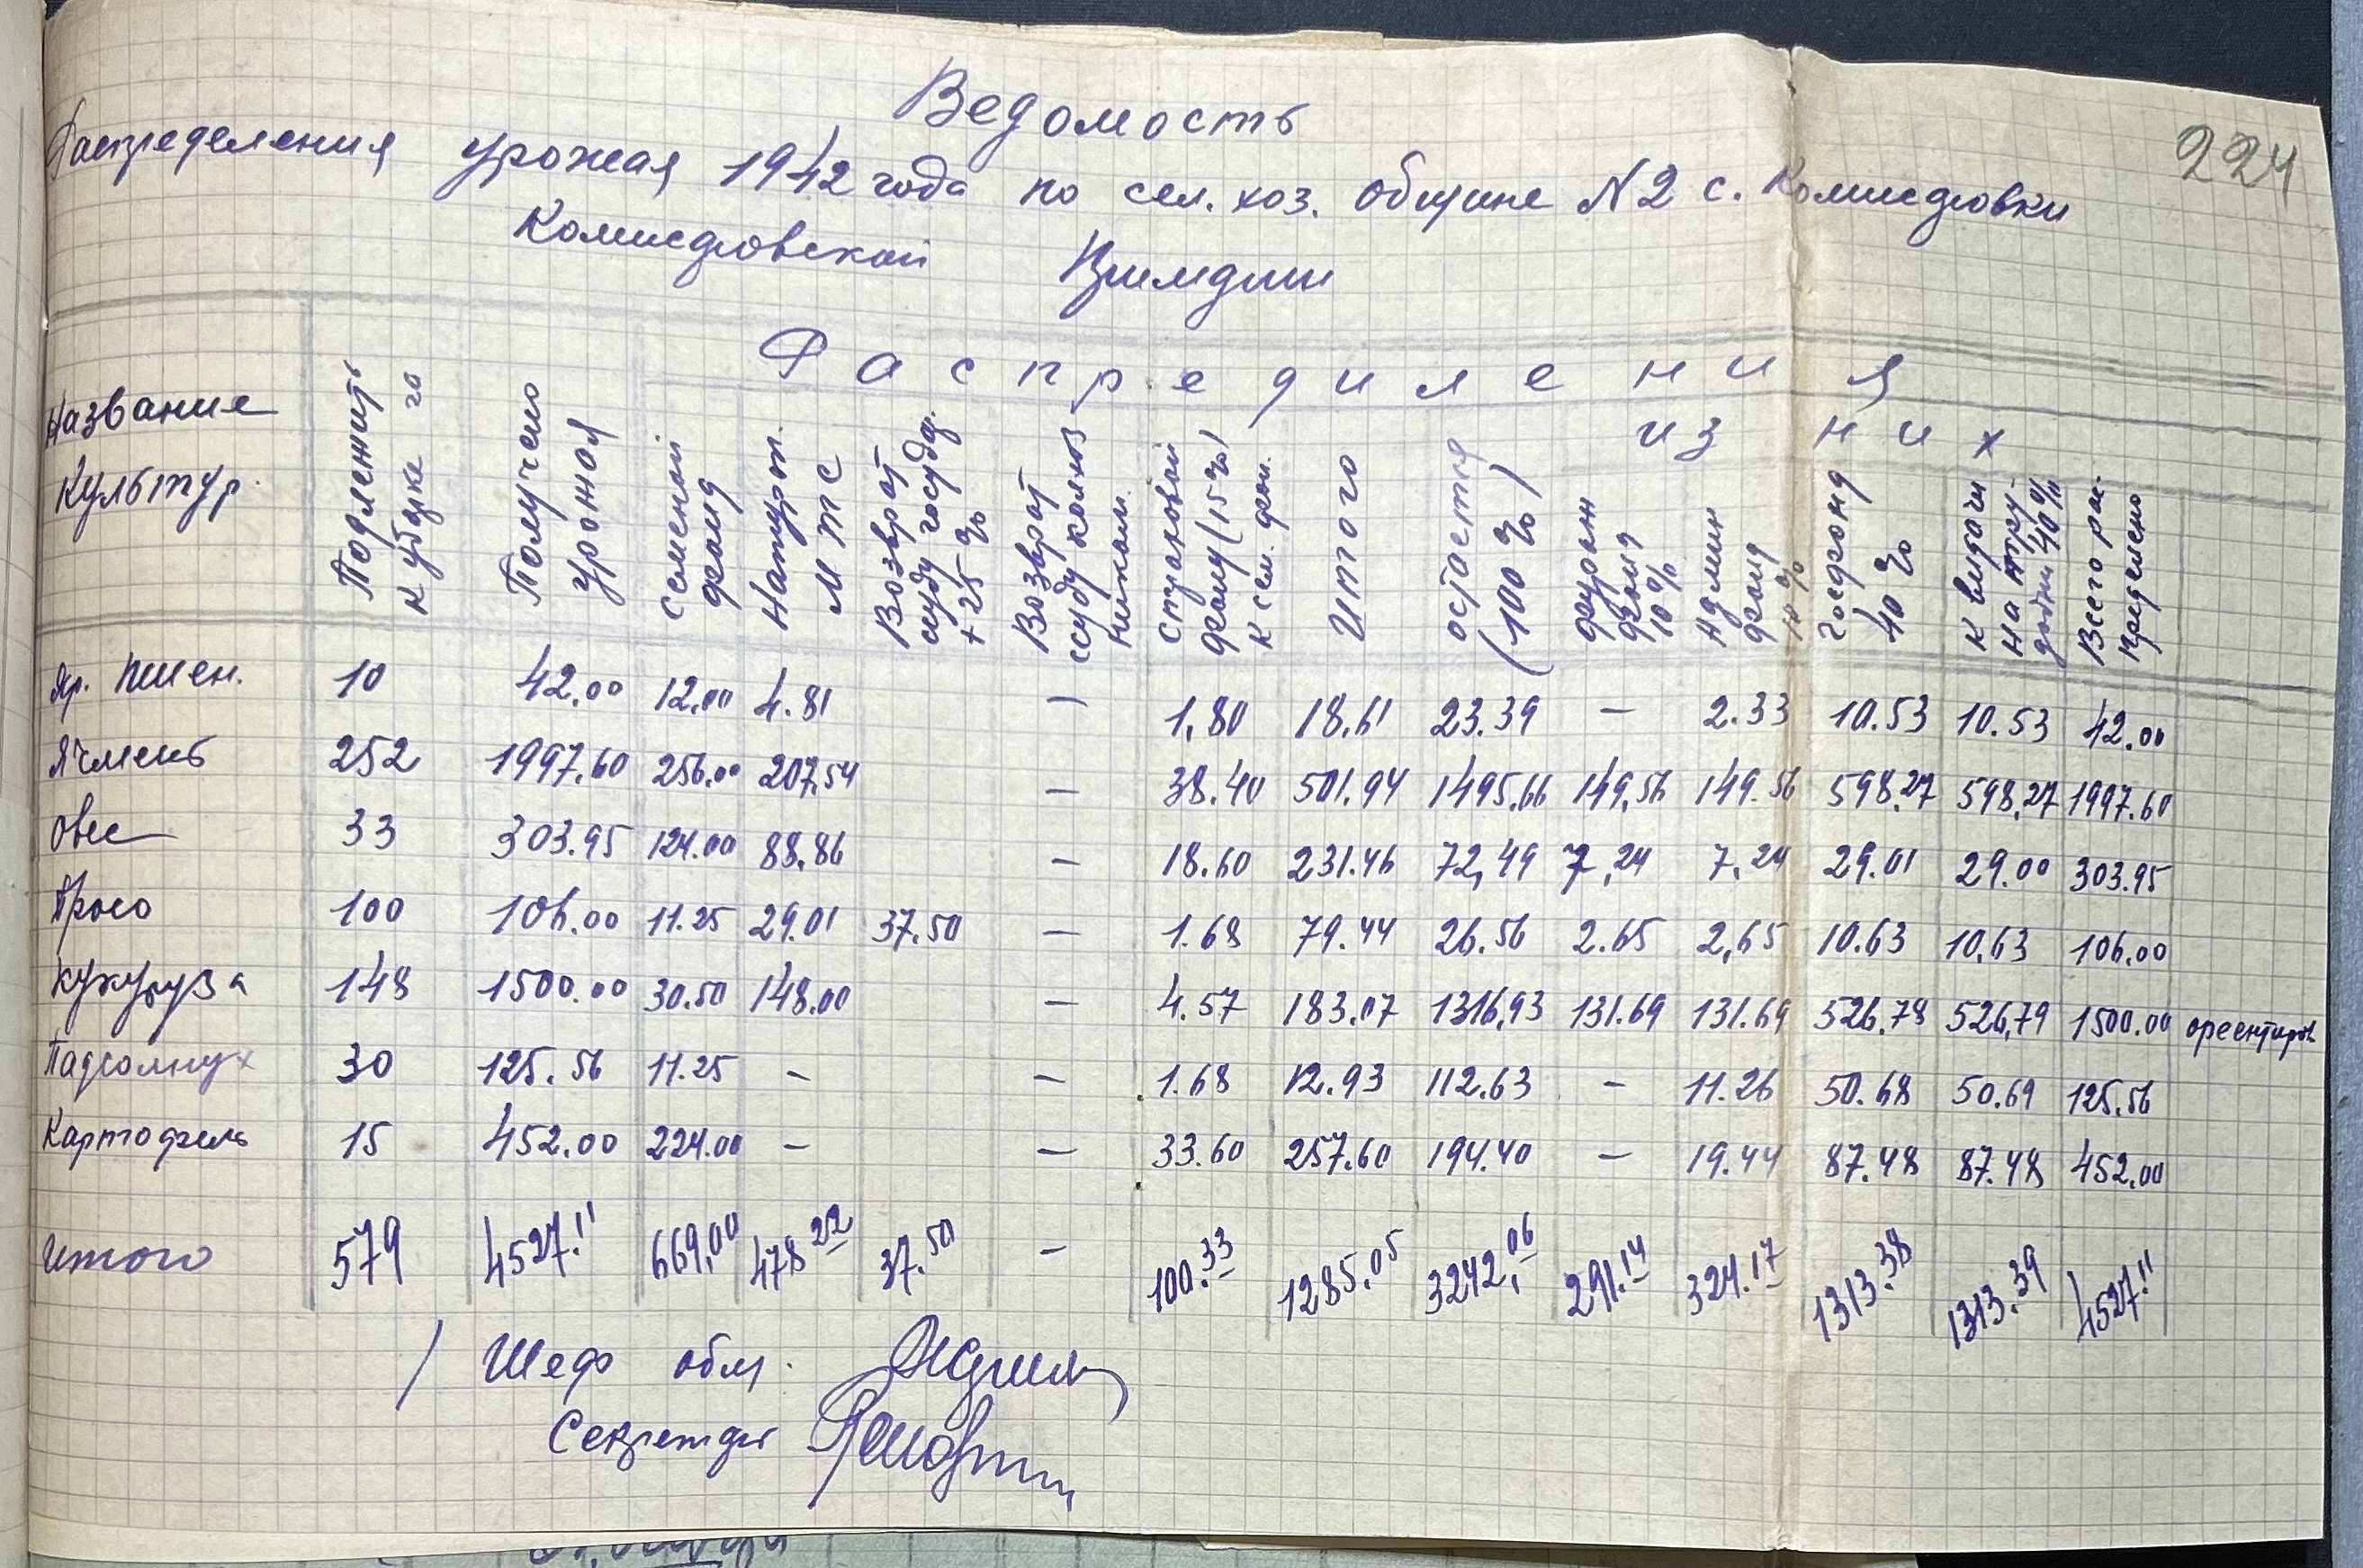 224
Ведомость
Распределения урожая 1942 года по сел. хоз. общине N2 с. Комиссаровки
Комиссаровской
Распридиления
из них
Название Культур.
Подлежит к убурке га
Получено урожая
Семеной фонд
Натуроп. МТС
Возврат ссуду государ. + 25 %
Возврат ссуду
Страховой фонд (15%) к сем. фон.
Итого
остаеться (100 %)
фураж фонд 10%
Админ фонд 10 %
Госфонд 40 %
К видачи на трудодни 40%
Всего распределено
Яр. Пшен. 10 42.00 12.00 4.81 — 1,80 18,61 23.39 — 2.33 10.53 10.53 42.00
Ячмень 252 1997.60 256.00 207,54 — 38.40 501.94 1495,66 149,56 149.56 598,27 598,27 1997.60
Овес 33 303.95 124.00 88.86 — 18.60 231.46 72,49 7,24 7,24 29.01 29.00 303.95
Просо 100 106.00 11.25 29.01 37.50 — 1.68 79.44 26.56 2.65 2,65 10.63 10,63 106.00
Кукуруза 148 1500.00 30.50 148.00 — 4.57 183.07 1316,93 131.69 131.69 526,78 526,79 1500.00 ореентиров
Падсолнух 30 125.56 11.25 — — 1.68 12.93 112.63 — 11.26 50.68 50.69 125.56
Картофель 15 452.00 224.00 — — 33.60 257.60 194.40 — 19.44 87.48 87.48 452,00
Итого 579 4527.11 669,00 478 22 37.50 — 100.33 1285.05 3242,06 291.14 324.17 1313.38 1313.39 4527.11
/ Шеф общ.
Секретарь